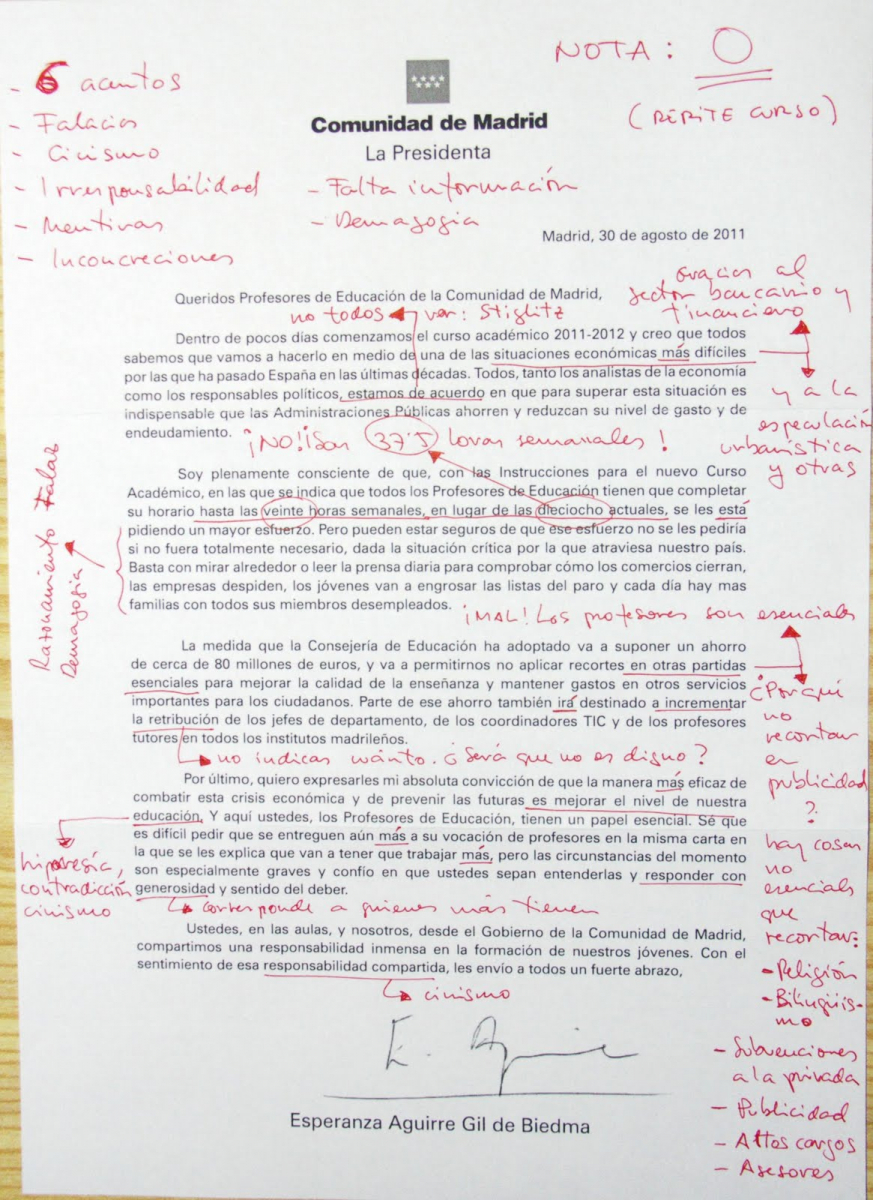 NOTA: 0
(REPITE CURSO)
- 6 acentos
- Falacias
- Cinismo
- Irresponsabilidad
- Mentiras
- Inconcreciones
- Falta información
- Demagogia
Comunidad de Madrid
La Presidenta
Madrid, 30 de agosto de 2011
gracias al
sector bancario y
financiero
Queridos Profesores de Educación de la Comunidad de Madrid,
no todos ver: Stiglitz
Dentro de pocos días comenzamos el curso académico 2011-2012 y creo que todos
sabemos que vamos a hacerlo en medio de una de las situaciones económicas más difíciles
por las que ha pasado España en las últimas décadas. Todos, tanto los analistas de la economía
como los responsables políticos, estamos de acuerdo en que para superar esta situación es
indispensable que las Administraciones Públicas ahorren y reduzcan su nivel de gasto y de
endeudamiento.
y a la
especulación
urbanística
y otras
¡NO! ¡Son 37'5 horas semanales!
Soy plenamente consciente de que, con las Instrucciones para el nuevo Curso
Académico, en las que se indica que todos los Profesores de Educación tienen que completar
su horario hasta las veinte horas semanales, en lugar de las dieciocho actuales, se les está
pidiendo un mayor esfuerzo. Pero pueden estar seguros de que ese esfuerzo no se les pediría
si no fuera totalmente necesario, dada la situación crítica por la que atraviesa nuestro país.
Basta con mirar alrededor o leer la prensa diaria para comprobar cómo los comercios cierran,
las empresas despiden, los jóvenes van a engrosar las listas del paro y cada día hay mas
familias con todos sus miembros desempleados.
Razonamiento Falaz
Demagogia
¡MAL! Los profesores son esenciales
La medida que la Consejería de Educación ha adoptado va a suponer un ahorro
de cerca de 80 millones de euros, y va a permitirnos no aplicar recortes en otras partidas
esenciales para mejorar la calidad de la enseñanza y mantener gastos en otros servicios
importantes para los ciudadanos. Parte de ese ahorro también irá destinado a incrementar
la retribución de los jefes de departamento, de los coordinadores TIC y de los profesores
tutores en todos los institutos madrileños.
no indicas cuánto. ¿Será que no es digno?
Por último, quiero expresarles mi absoluta convicción de que la manera más eficaz de
combatir esta crisis económica y de prevenir las futuras es mejorar el nivel de nuestra
educación. Y aquí ustedes, los Profesores de Educación, tienen un papel esencial. Sé que
es dificil pedir que se entreguen aún más a su vocación de profesores en la misma carta en
la que se les explica que van a tener que trabajar más, pero las circunstancias del momento
son especialmente graves y confío en que ustedes sepan entenderlas y responder con
generosidad y sentido del deber.
hipocresía,
contradicción
cinismo
corresponde a quienes más tienen
Ustedes, en las aulas, y nosotros, desde el Gobierno de la Comunidad de Madrid,
compartimos una responsabilidad inmensa en la formación de nuestros jóvenes. Con el
sentimiento de esa responsabilidad compartida, les envío a todos un fuerte abrazo,
cinismo
¿Por qué
no
recortar
en
publicidad
?
hay cosas
no
esenciales
que
recortar:
- Religión
- Bilingüis-
mo
- Subvenciones
a la privada
- Publicidad
- Altos cargos
- Asesores
E. Aguirre
Esperanza Aguirre Gil de Biedma